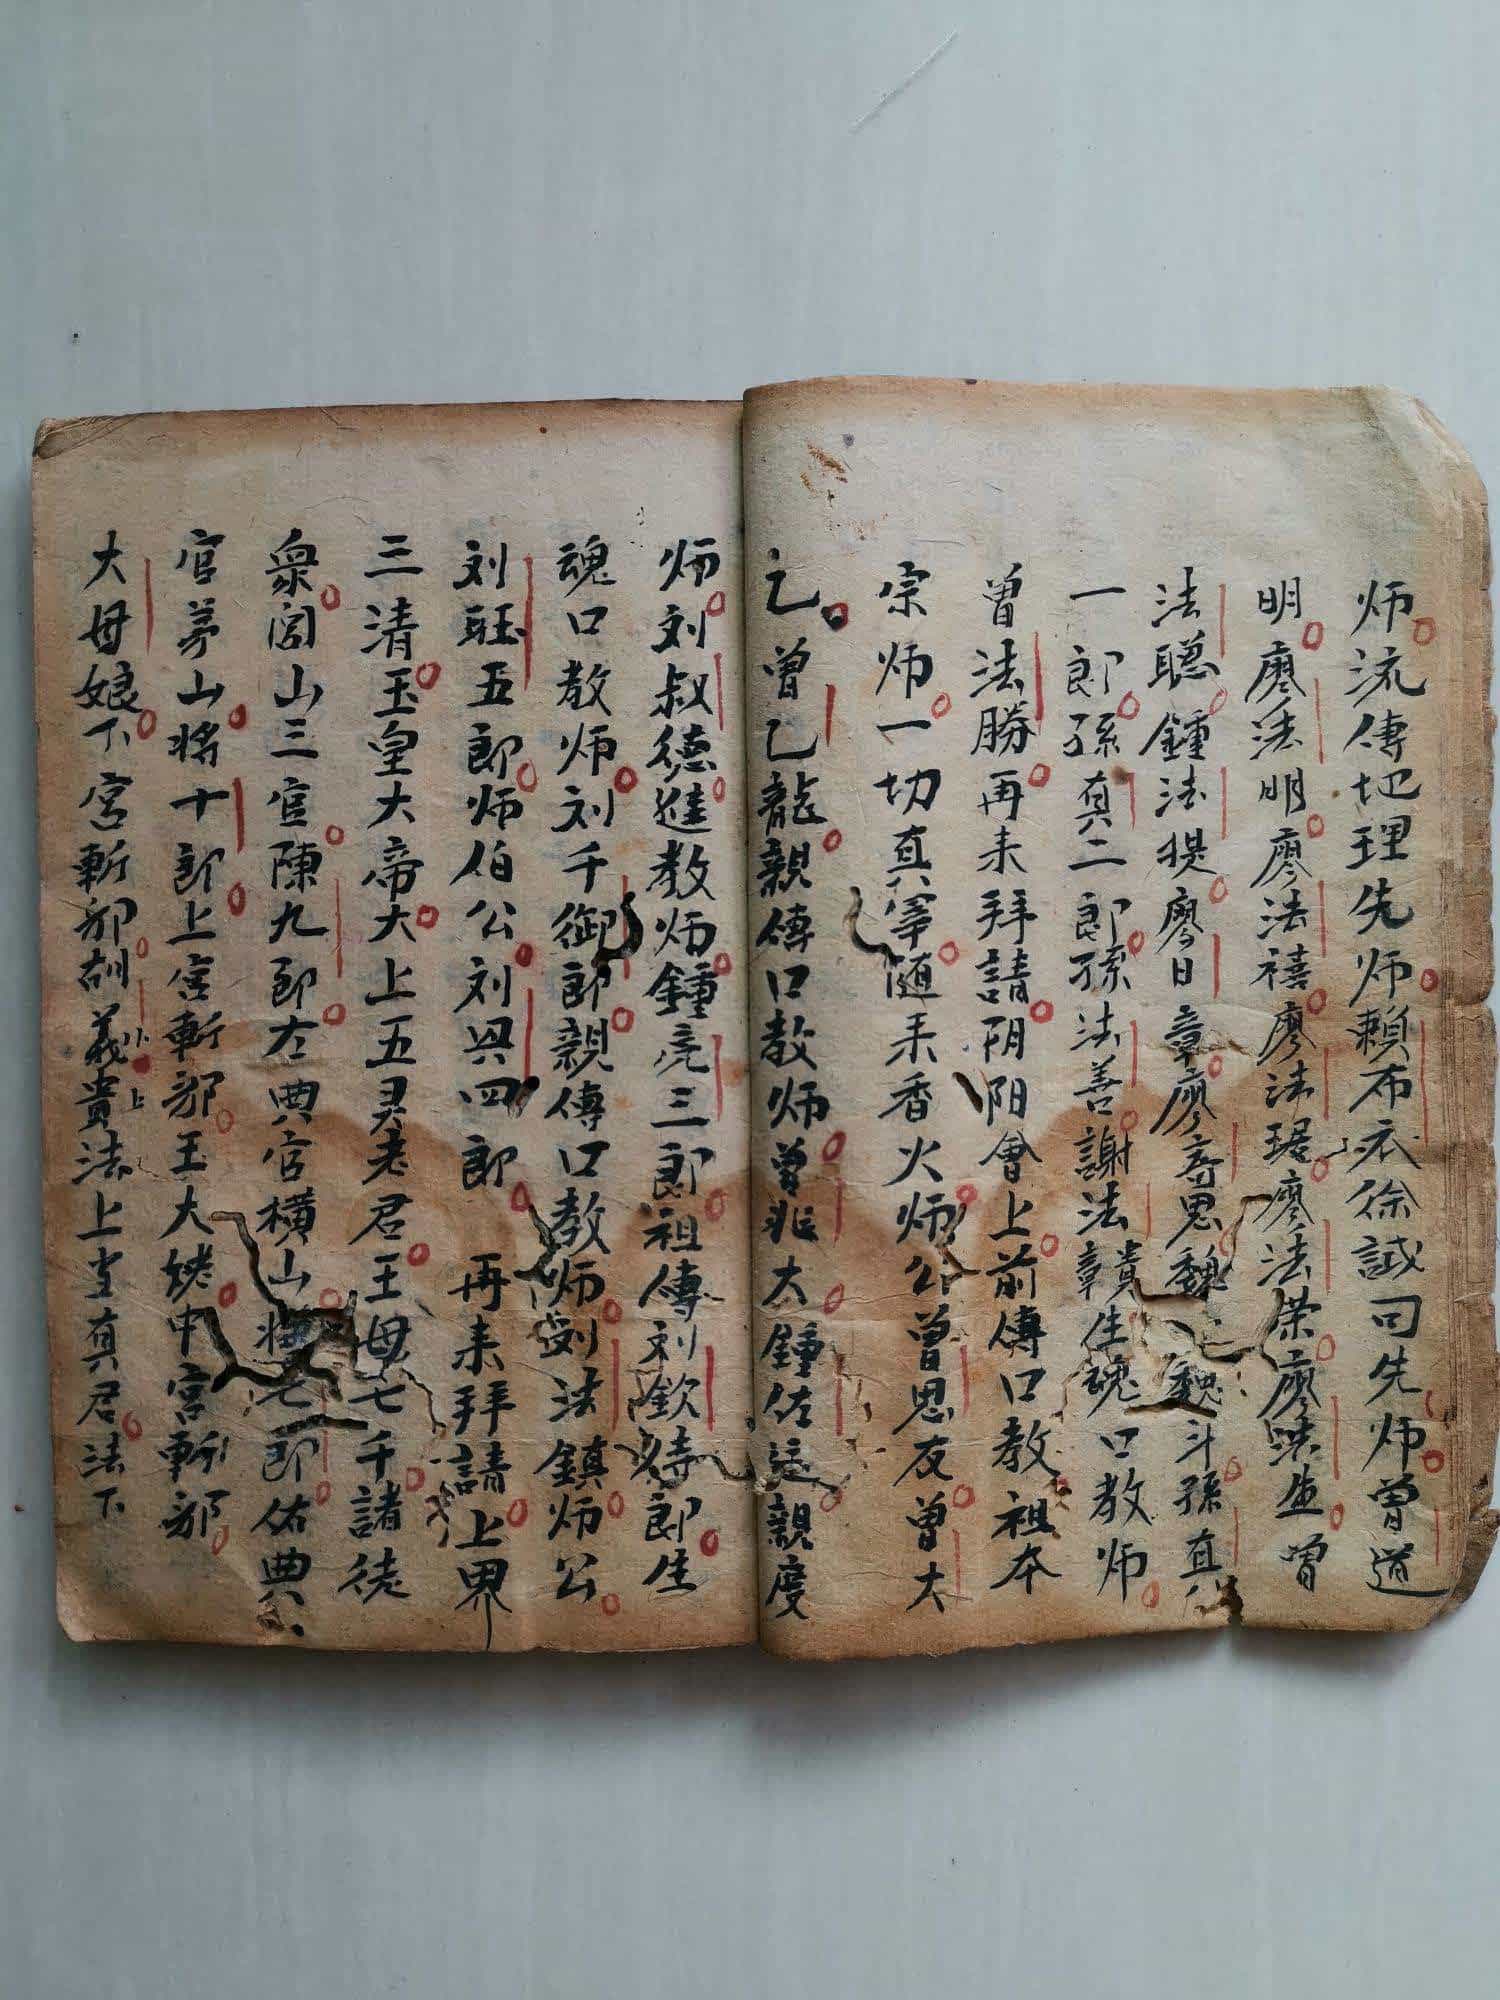 师流傳地理先师賴布衣徐誠司先师曾道
明廖法明廖法禧廖法琚廖法荣廖法生曾
法聰鍾法提廖日章廖寿思魏魏斗孫真
一郎孫真二郎孫法善謝法贛生魂口教师
曾法勝再来拜請阴阳會上前傳口教祖本
宗师一切真宰随来香火师公曾思友曾太
乙曾乙龍親傳口教师曾兆太鍾佑廷親度
师刘叔德進教师鍾亮三郎祖傳刘欽待郎生
魂口教师刘千御郎親傳口教师刘法鎮师公
刘玨五郎师伯公刘興四郎 再来拜請上界
三清玉皇大帝大上五灵老君王母七千諸徒
衆閭山三官陳九郎左典官橫山將七郎佑典
官茅山將十郎上宫斬邪王大姥中宫斬邪
大母娘下宫斬邪胡義貴法上吏真君法下